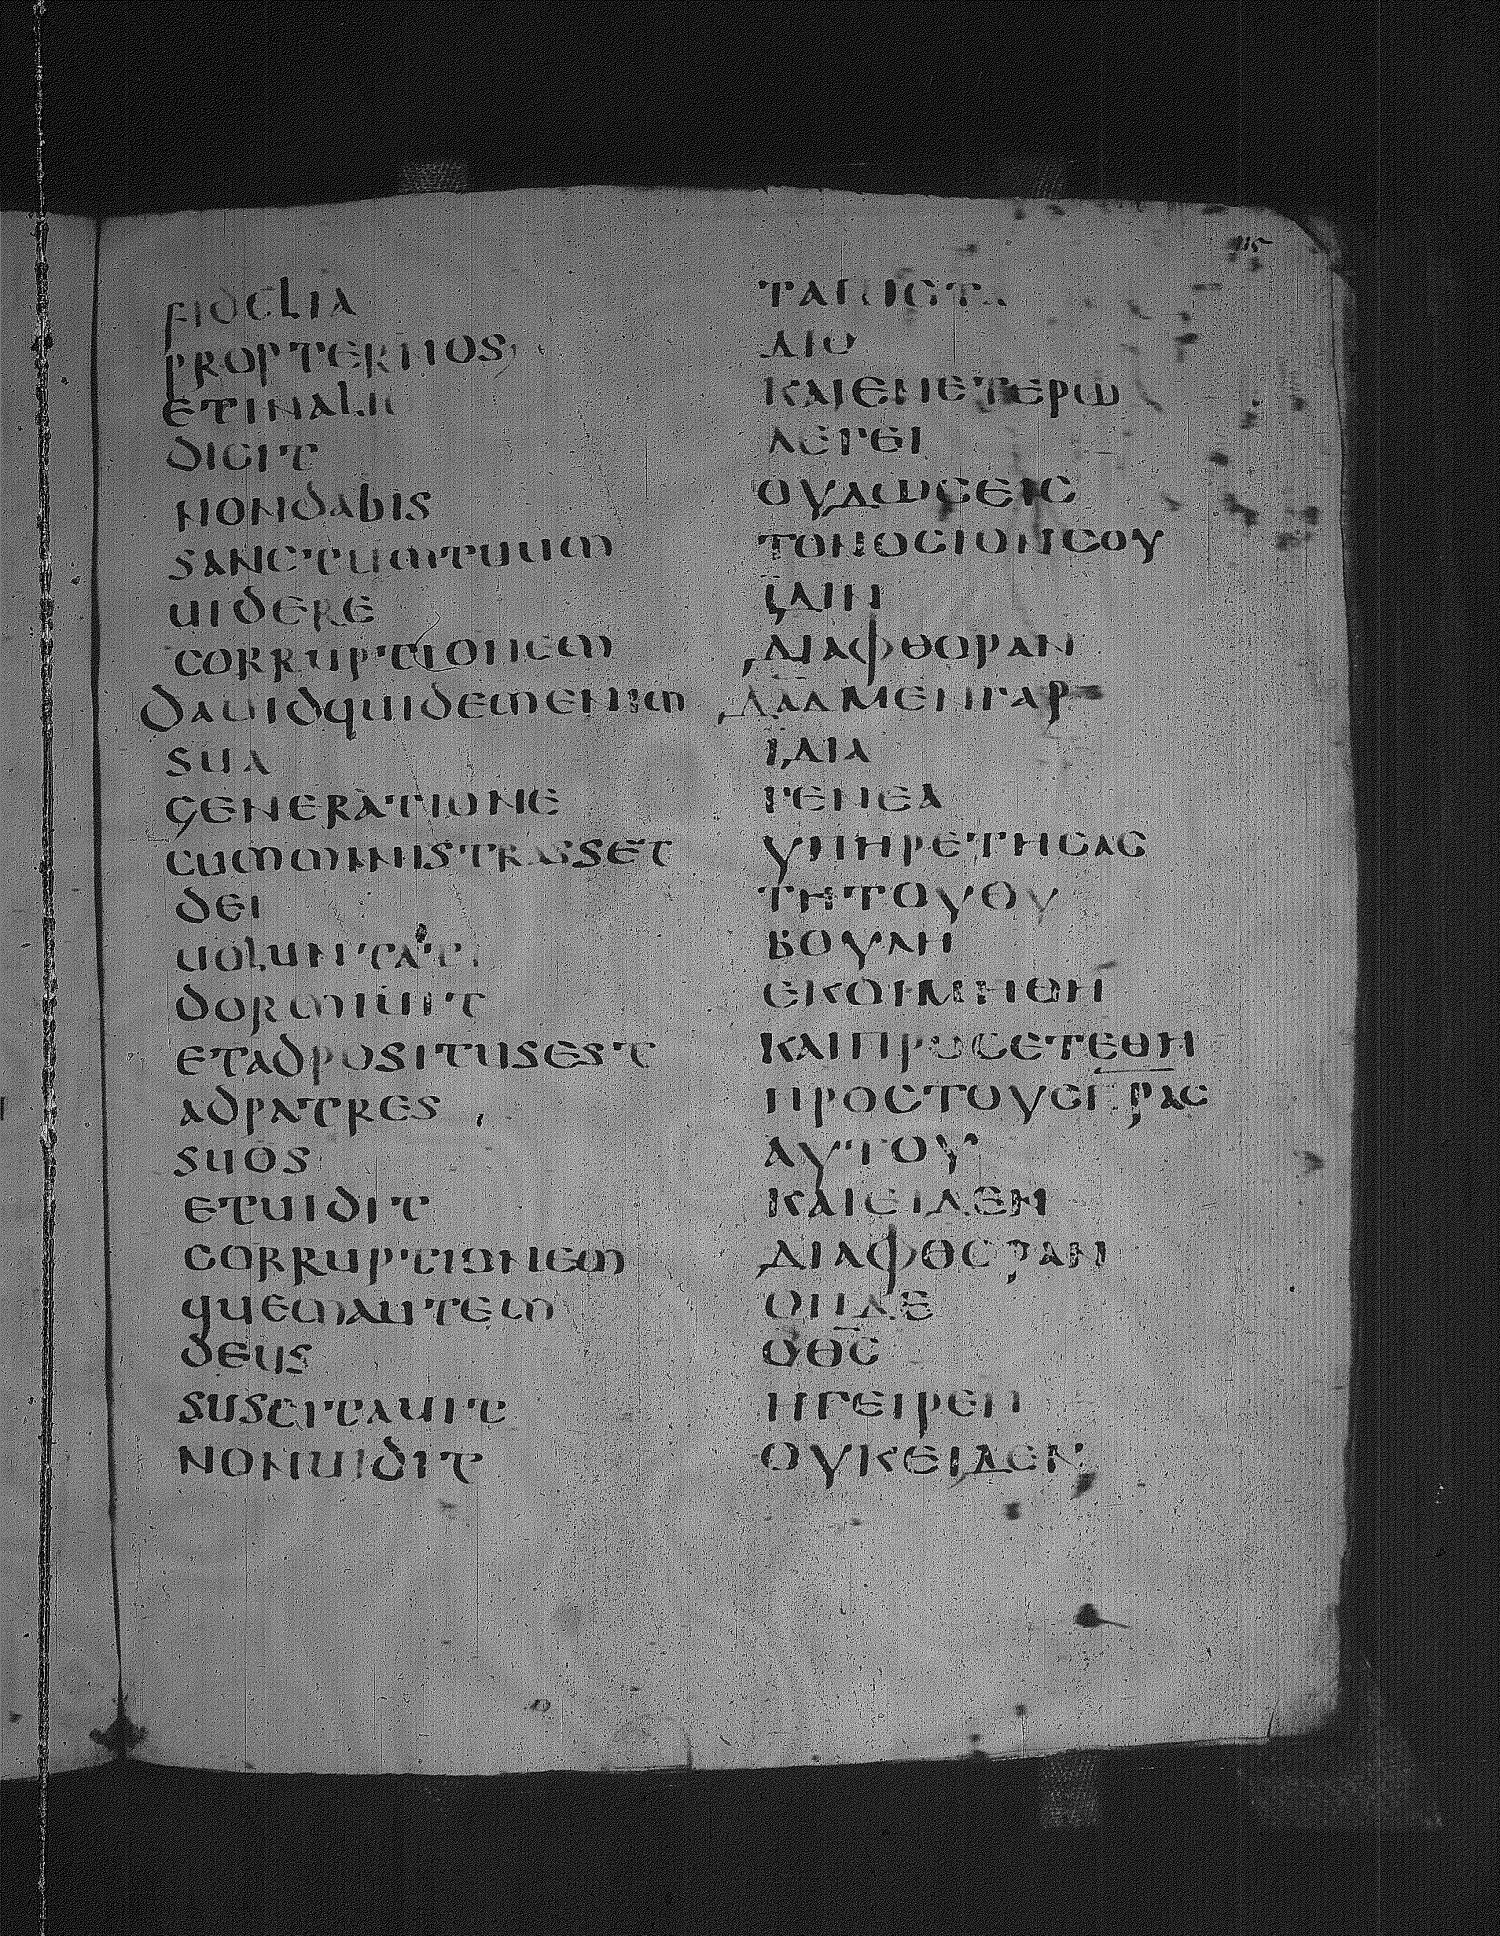 115
fidelia
propterhos
etinalio
dicit
nondabis
sanctumtuum
uidere
corruptionem
dauidquidemenim
sua
generatione
cumministrasset
dei
uoluntati
dormiuit
etadpositusest
adpatres
suos
etuidit
corruptionem
quemautem
deus
suscitauit
nonuidit
ΤΑΠΙϹΤΑ
ΔΙΟ
ΚΑΙΕΝΕΤΕΡΩ
ΛΕΓΕΙ
ΟΥΔΩϹΕΙϹ
ΤΟΝΟϹΙΟΝϹΟΥ
ΙΔΙΝ
ΔΙΑΦΘΟΡΑΝ
ΔΑΔΜΕΝΓΑΡ
ΙΔΙΑ
ΓΕΝΕΑ
ΥΠΗΡΕΤΗϹΑϹ
ΤΗΤΟΥΘΥ
ΒΟΥΛΗ
ΕΚΟΙΜΗΘΗ
ΚΑΙΠΡΟϹΕΤΕΘΗ
ΠΡΟϹΤΟΥϹΠΡΑϹ
ΑΥΤΟΥ
ΚΑΙΕΙΔΕΝ
ΔΙΑΦΘΟΡΑΝ
ΟΝΔΕ
ΟΘϹ
ΗΓΕΙΡΕΝ
ΟΥΚΕΙΔΕΝ